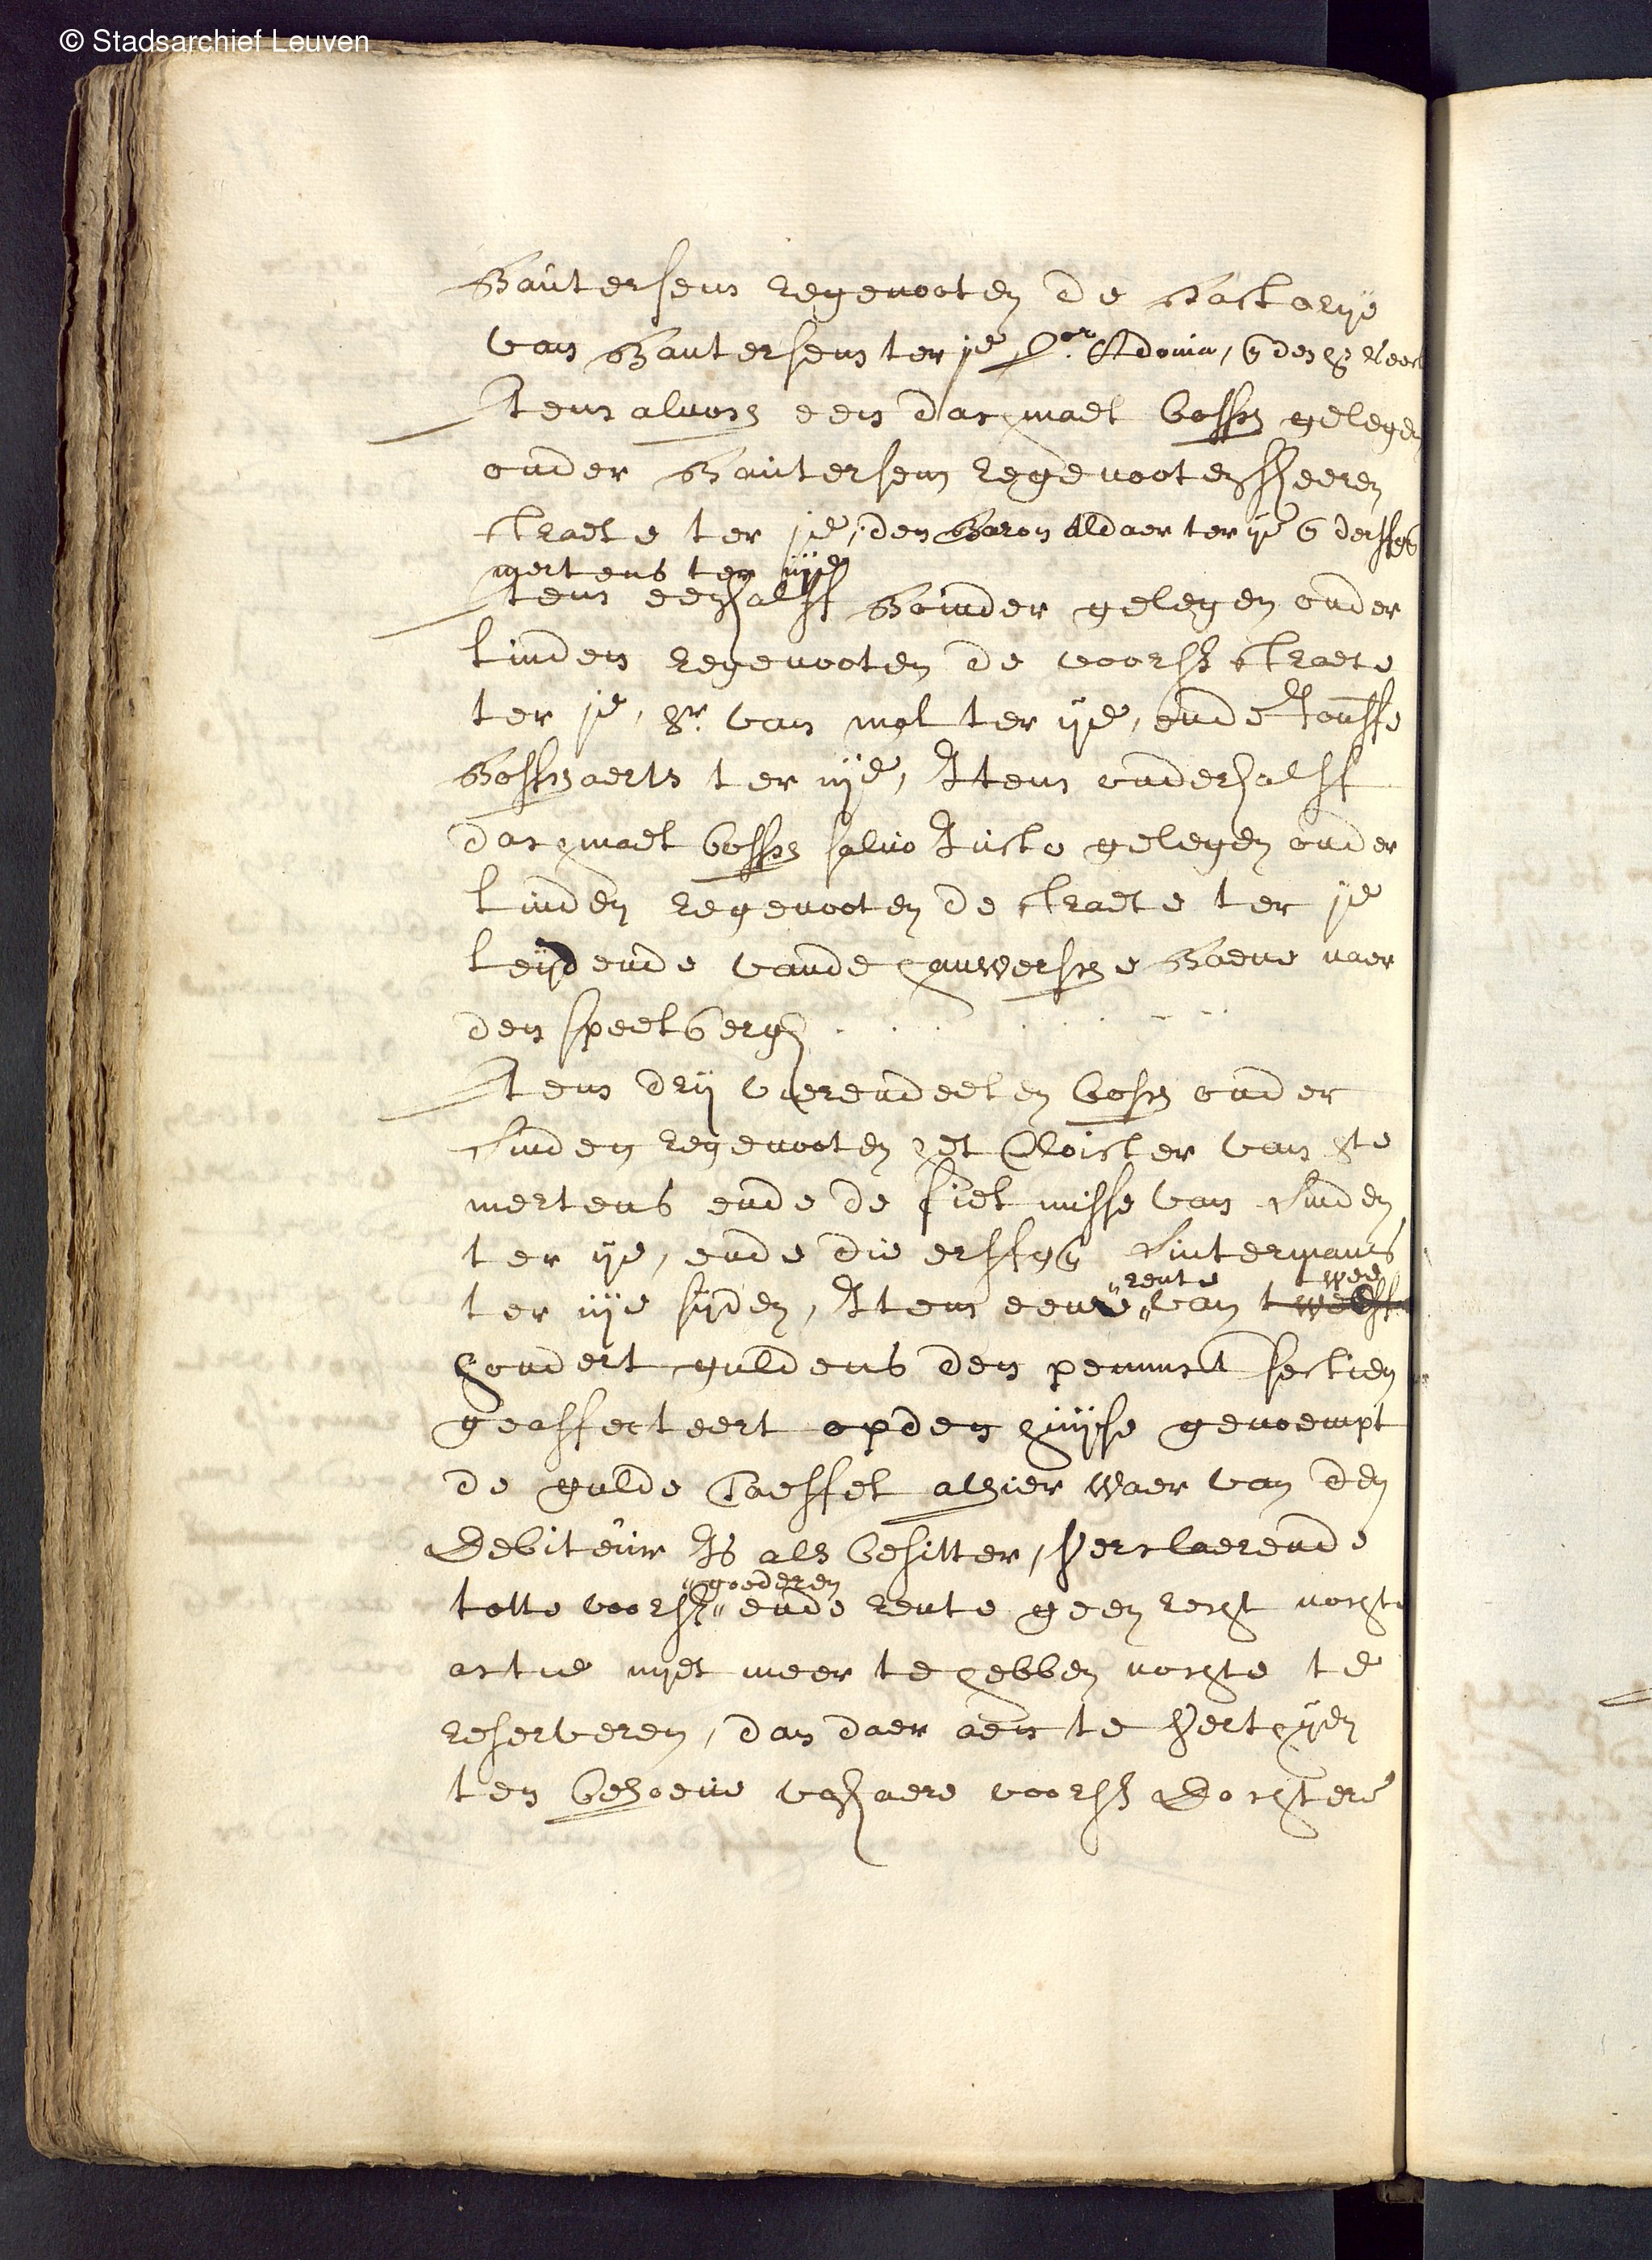 © Stadsarchief Leuven
Bautersem regenooten de Pastorye
van Bautersem ter je Sor Adoum, en den hr
Item alnoch een dachmael bosch gelegen
onder Bautersem regenooten sheeren
straete ter je, den Baron Aldaer ter ije en d'erffg
mertens ter iije
Item een half Boinder gelegen onder
linden regenooten de voors straete
ter je, hr van mol ter ije, ende Jouffe
Bosschaerts ter iije, Item onderhalff
dachmael bosch salvo Justo gelegen onder
linden regenooten de straete ter je
leydende vande pauwersche Baene naer
den speelbergh
Item drij vierendeelen bosch onder
Linden regenooten het Clooster van Ste
mertens ende de siel misse van Linden
ter ije, ende die erffgen Lintermans
ter iije sijden, Item eene rente van twee
hondert guldens den penninck sestien
geaffecteert op den huyse genoempt
de gulde Taeffel alhier waer van den
Debiteur Is als besitter, verclaerende
totte voors goederen ende rente geen recht nochte
actie nijet meer te hebben nochte te
reserveren, dan daer aen te vertyden
ten behoeve van haere voors Dochtere